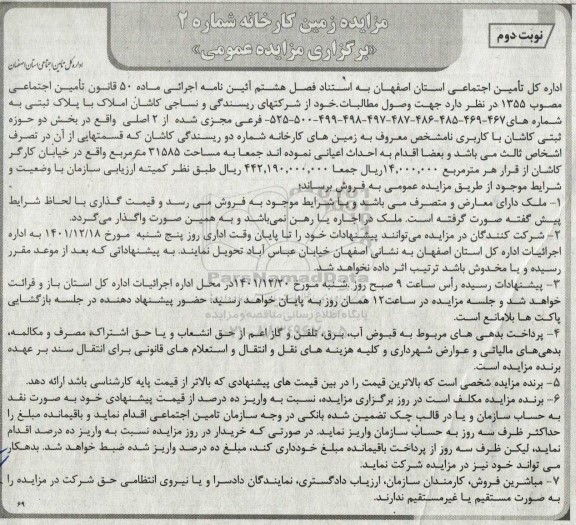 نوبت دوم
مزایده زمین کارخانه شماره ۲
«برگزاری مزایده عمومی»
اداره کل تأمین اجتماعی استان اصفهان
اداره کل تأمین اجتماعی استان اصفهان به استناد فصل هشتم آئین نامه اجرائی ماده ۵۰ قانون تأمین اجتماعی
مصوب ۱۳۵۵ در نظر دارد جهت وصول مطالبات.خود از شرکتهای ریسندگی و نساجی کاشان املاک با پلاک ثبتی به
شماره های۴۶۷-۴۶۹-۴۸۵-۴۸۶-۴۸۷-۴۹۷-۴۹۸-۴۹۹-۵۰۰-۵۲۵- فرعی مجزی شده از ۲ اصلی واقع در بخش دو حوزه
ثبتی کاشان با کاربری نامشخص معروف به زمین های کارخانه شماره دو ریسندگی کاشان که قسمتهایی از آن در تصرف
اشخاص ثالث می باشد و بعضا اقدام به احداث اعیانی نموده اند جمعا به مساحت ۳۱۵۸۵ مترمربع واقع در خیابان کارگر
کاشان از قرار هر مترمربع ۱۴,۰۰۰,۰۰۰ریال جمعا ۴۴۲,۱۹۰,۰۰۰,۰۰۰ ریال طبق نظر کمیته ارزیابی سازمان با وضعیت و
شرایط موجود از طریق مزایده عمومی به فروش برساند؛
۱- ملک دارای معارض و متصرف می باشد وبا شرایط موجود به فروش می رسد و قیمت گذاری با لحاظ شرایط
پیش گفته صورت گرفته است. ملک در اجاره یا رهن نمی‌باشد و به همین صورت واگذار می‌گردد.
۲- شرکت کنندگان در مزایده می‌توانند پیشنهادات خود را تا پایان وقت اداری روز پنج شنبه مورخ ۱۴۰۱/۱۲/۱۸ به اداره
اجرائیات اداره کل استان اصفهان به نشانی اصفهان خیابان عباس آباد تحویل نمایند. به پیشنهاداتی که بعد از موعد مقرر
رسیده و یا مخدوش باشد ترتیب اثر داده نخواهد شد.
۳- پیشنهادات رسیده رأس ساعت ۹ صبح روز شنبه مورخ ۱۴۰۱/۱۲/۲۰در محل اداره اجرائیات اداره کل استان باز و قرائت
خواهد شد و جلسه مزایده در ساعت۱۲ همان روز به پایان خواهد رسید؛ حضور پیشنهاد دهنده در جلسه بازگشایی
پاکت ها بلامانع است.
۴- پرداخت بدهی های مربوط به قبوض آب، برق، تلفن و گاز اعم از حق انشعاب و یا حق اشتراک، مصرف و مکالمه،
بدهی‌های مالیاتی و عوارض شهرداری و کلیه هزینه های نقل و انتقال و استعلام های قانونی برای انتقال سند بر عهده
برنده مزایده است.
۵- برنده مزایده شخصی است که بالاترین قیمت را در بین قیمت های پیشنهادی که بالاتر از قیمت پایه کارشناسی باشد ارائه دهد.
۶- برنده مزایده مکلف است در روز برگزاری مزایده، نسبت به واریز ده درصد از قیمت پیشنهادی خود به صورت نقد
به حساب سازمان و یا در قالب چک تضمین شده بانکی در وجه سازمان تامین اجتماعی اقدام نماید و باقیمانده مبلغ را
حداکثر ظرف سه روز به حساب سازمان واریز نماید. در صورتی که خریدار در روز مزایده نسبت به واریز ده درصد اقدام
نماید، لیکن ظرف سه روز از پرداخت باقیمانده مبلغ خودداری کند، مبلغ ده درصد واریز شده ضبط خواهد شد. بدهکار
می تواند خود نیز در مزایده شرکت نماید.
۷- مباشرین فروش، کارمندان سازمان، ارزیاب دادگستری، نمایندگان دادسرا و یا نیروی انتظامی حق شرکت در مزایده را
به صورت مستقیم یا غیرمستقیم ندارند.
۶۹
ParsNamadData
پایگاه اطلاع رسانی مناقصه و مزایده